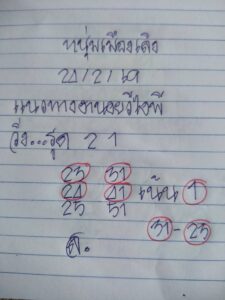 หนุ่มเมืองเลิง
21/2/69
แนวทางฮานอยวีไอพี
วิ่ง...รูด 21
23 31
24 41 เน้น 1
25 51
31-23